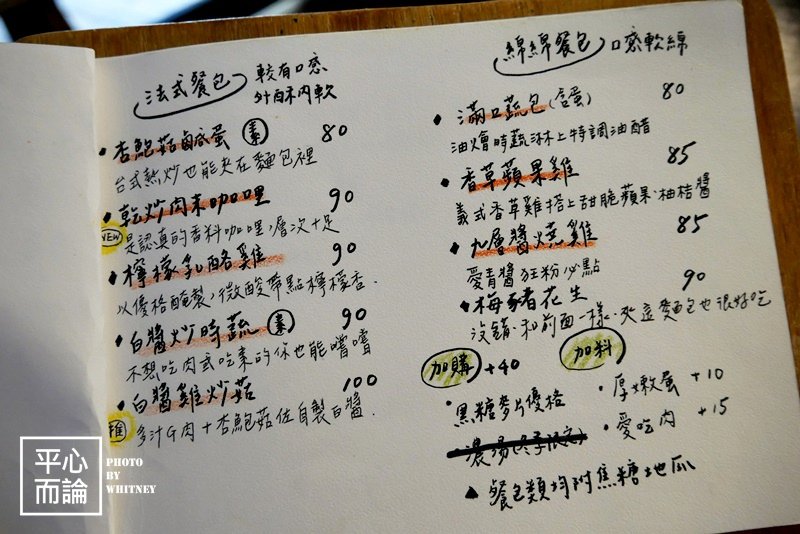 法式餐包 較有口感
外酥內軟
• 杏鮑菇鹹蛋 素 80
台式熱炒也能夾在麵包裡
• 乾炒肉末咖哩 90
NEW 是認真的香料咖哩,層次十足
• 檸檬乳酪雞 90
以優格醃製,微酸帶點檸檬香.
• 白醬炒時蔬 素 90
不想吃肉或吃素的你也能嚐嚐
• 白醬雞炒菇 100
推 多汁G肉+杏鮑菇佐自製白醬.
綿綿餐包 口感軟綿
• 滿口蔬包(含蛋) 80
油燴時蔬淋上特調油醋
• 香草蘋果雞 85
義式香草雞搭上甜脆蘋果.柚桔醬
• 九層醬燒雞 85
愛青醬狂粉必點
• 梅豬花生 90
沒錯.和前面一樣.夾這麵包也很好吃
加購 +40
• 黑糖麥片優格
• 濃湯(冬季限定)
加料
• 厚嫩蛋 +10
• 愛吃肉 +15
▲ 餐包類均附焦糖地瓜
平心而論
PHOTO
BY
WHITNEY